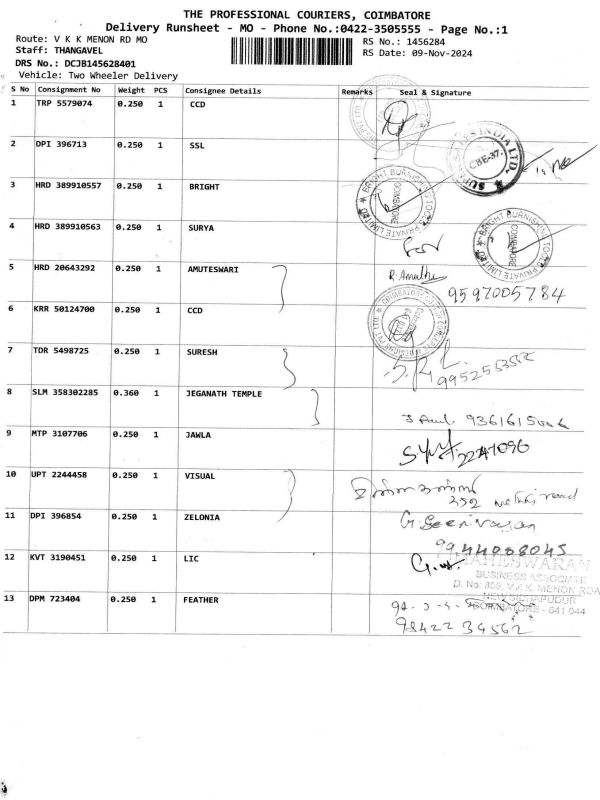 THE PROFESSIONAL COURIERS, COIMBATORE
Delivery Runsheet - MO - Phone No.:0422-3505555 - Page No.:1
Route: V K K MENON RD MO
RS No.: 1456284
Staff: THANGAVEL
RS Date: 09-Nov-2024
DRS No.: DCJB145628401
Vehicle: Two Wheeler Delivery
S No Consignment No Weight PCS Consignee Details Remarks Seal & Signature
1 TRP 5579074 0.250 1 CCD
2 DPI 396713 0.250 1 SSL
CBE-37.
3 HRD 389910557 0.250 1 BRIGHT
BRIGHT BURNISHING TOOLS PRIVATE LIMITED
COIMBATORE
4 HRD 389910563 0.250 1 SURYA
BRIGHT BURNISHING TOOLS PRIVATE LIMITED
COIMBATORE
5 HRD 20643292 0.250 1 AMUTESWARI
9597005784
6 KRR 50124700 0.250 1 CCD
7 TDR 5498725 0.250 1 SURESH
8 SLM 358302285 0.360 1 JEGANATH TEMPLE
9 MTP 3107706 0.250 1 JAWLA
2247096
10 UPT 2244458 0.250 1 VISUAL
11 DPI 396854 0.250 1 ZELONIA
G. Seenivasan
9944008045
12 KVT 3190451 0.250 1 LIC
MAHESWARAN
BUSINESS ASSOCIATE
V.K.K. MENON ROAD
NEW SIDHAPUDUR
COIMBATORE - 641 044
13 DPM 723404 0.250 1 FEATHER
98422 34562